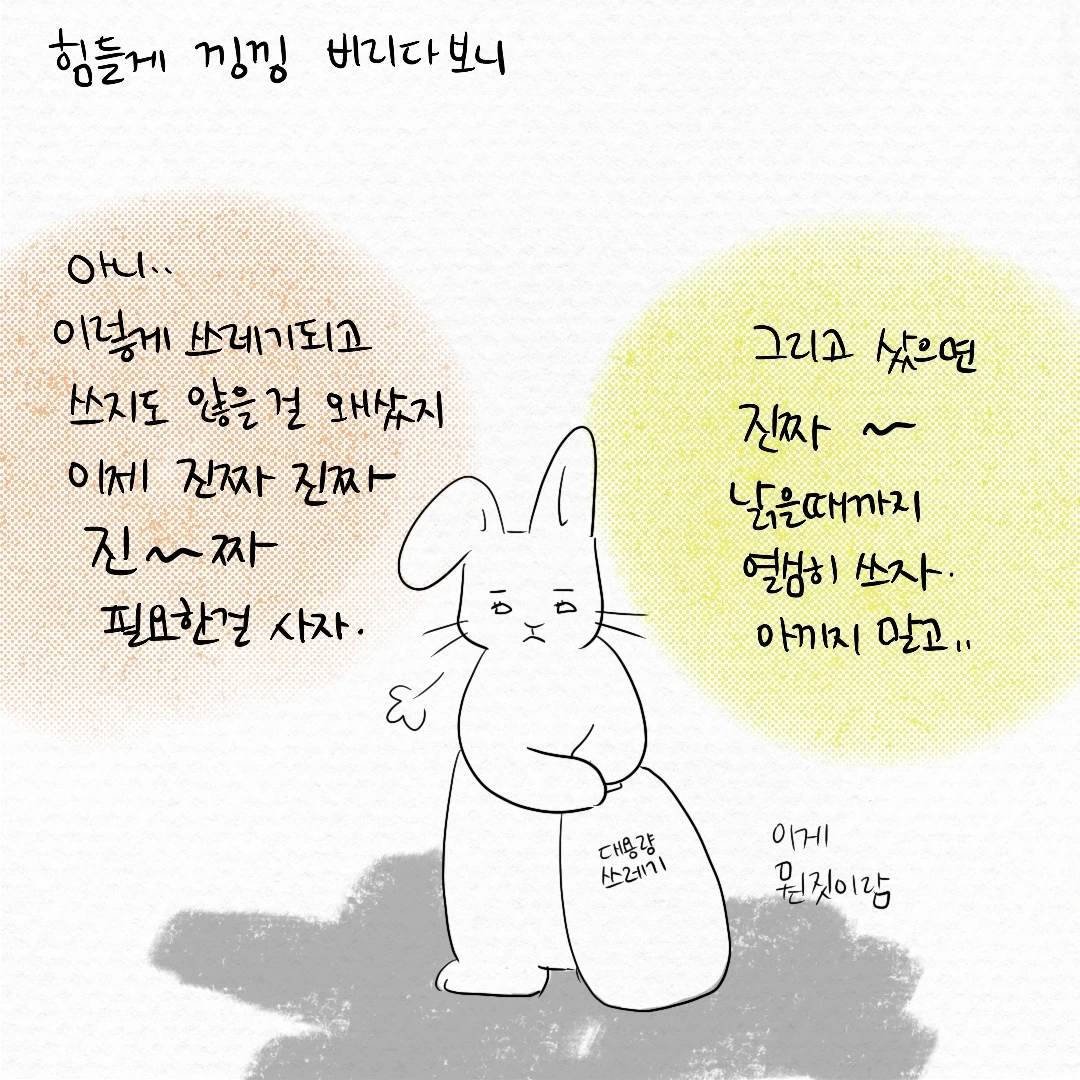 힘들게 낑낑 버리다보니
아니..
이렇게 쓰레기되고
쓰지도 않을걸 왜샀지
이제 진짜 진짜
진~짜
필요한걸 사자.
그리고 샀으면
진짜 ~
낡을때까지
열심히 쓰자.
아끼지 말고..
대용량
쓰레기
이게
뭔짓이람